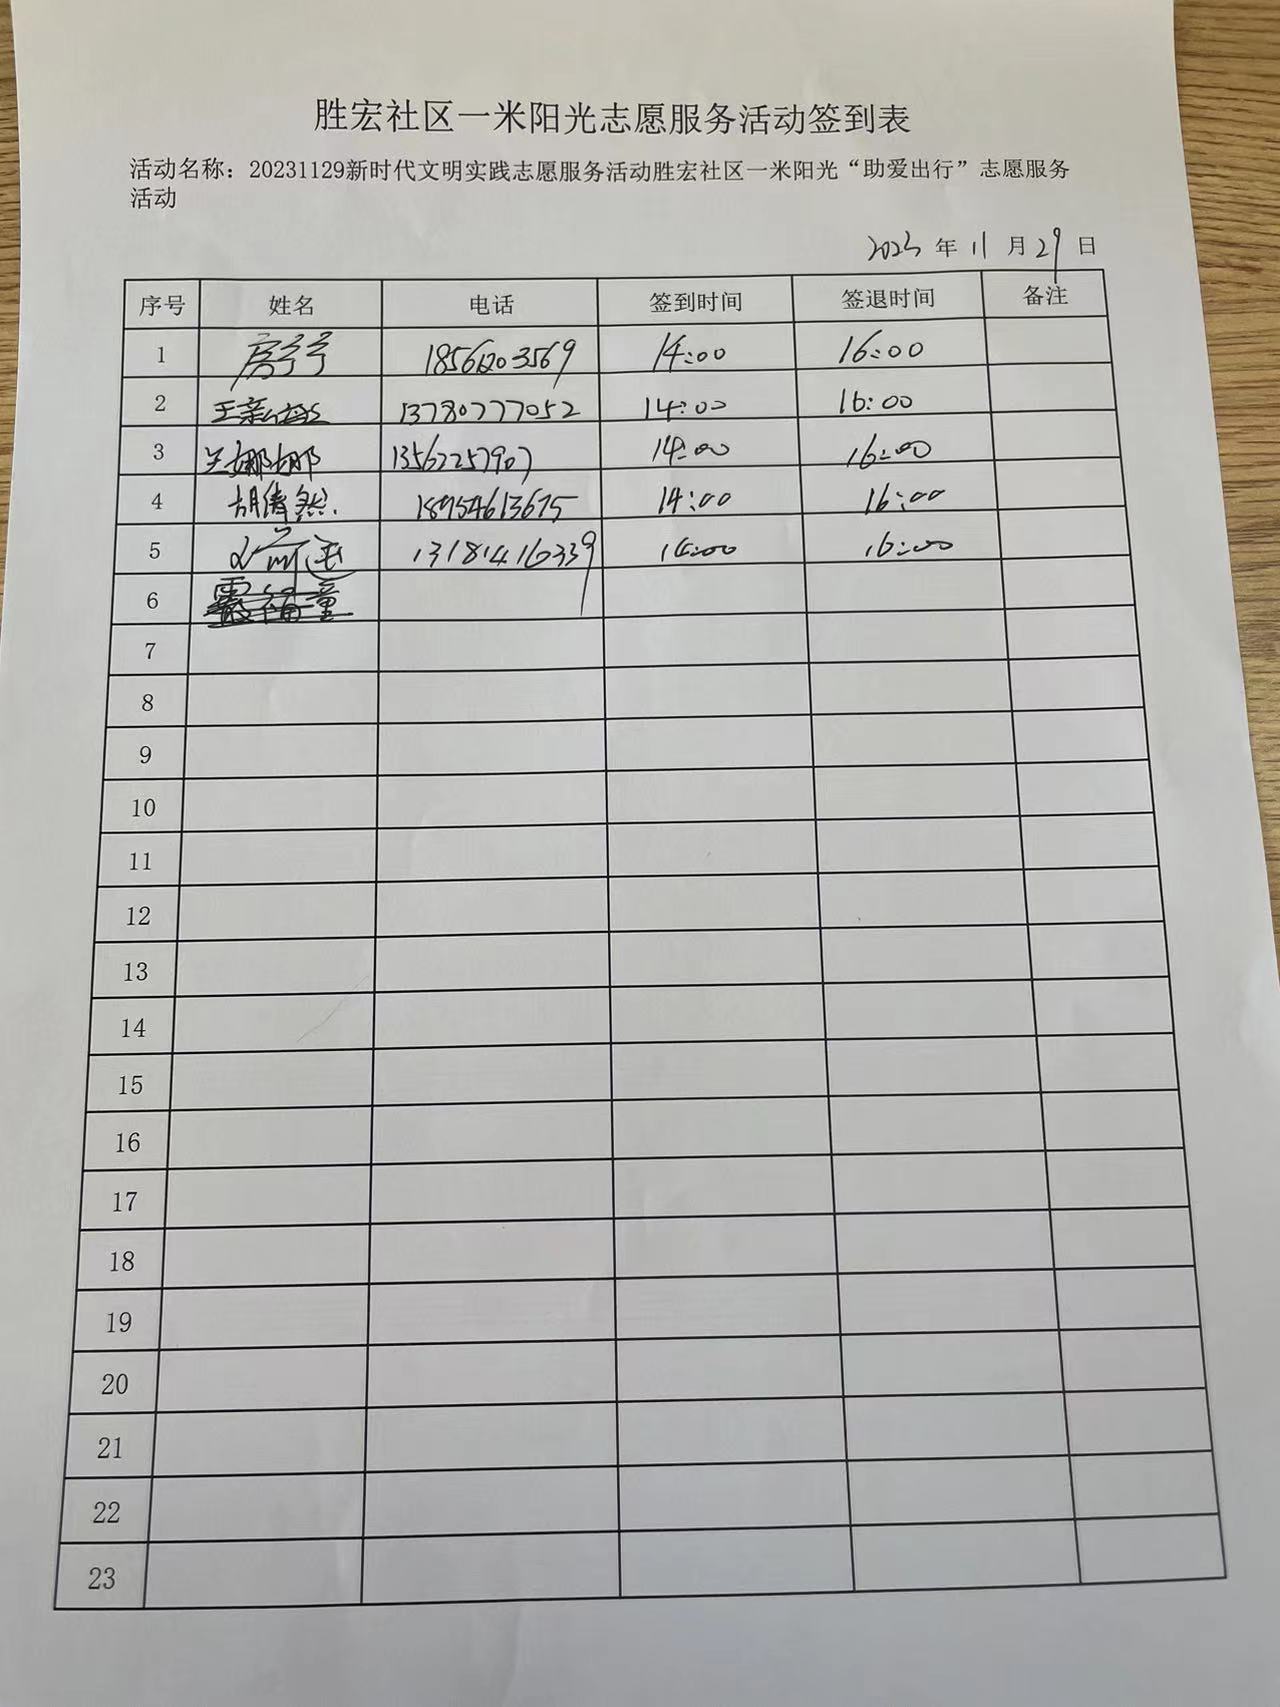 胜宏社区一米阳光志愿服务活动签到表
活动名称：20231129新时代文明实践志愿服务活动胜宏社区一米阳光“助爱出行”志愿服务
活动
2023 年 11 月 29 日
序号 姓名 电话 签到时间 签退时间 备注
1 14:00 16:00
2 13780777052 14:00 16:00
3 兰娜娜 13562257907 14:00 16:00
4 胡倩然 18954613675 14:00 16:00
5 13181416339 14:00 16:00
6
7
8
9
10
11
12
13
14
15
16
17
18
19
20
21
22
23